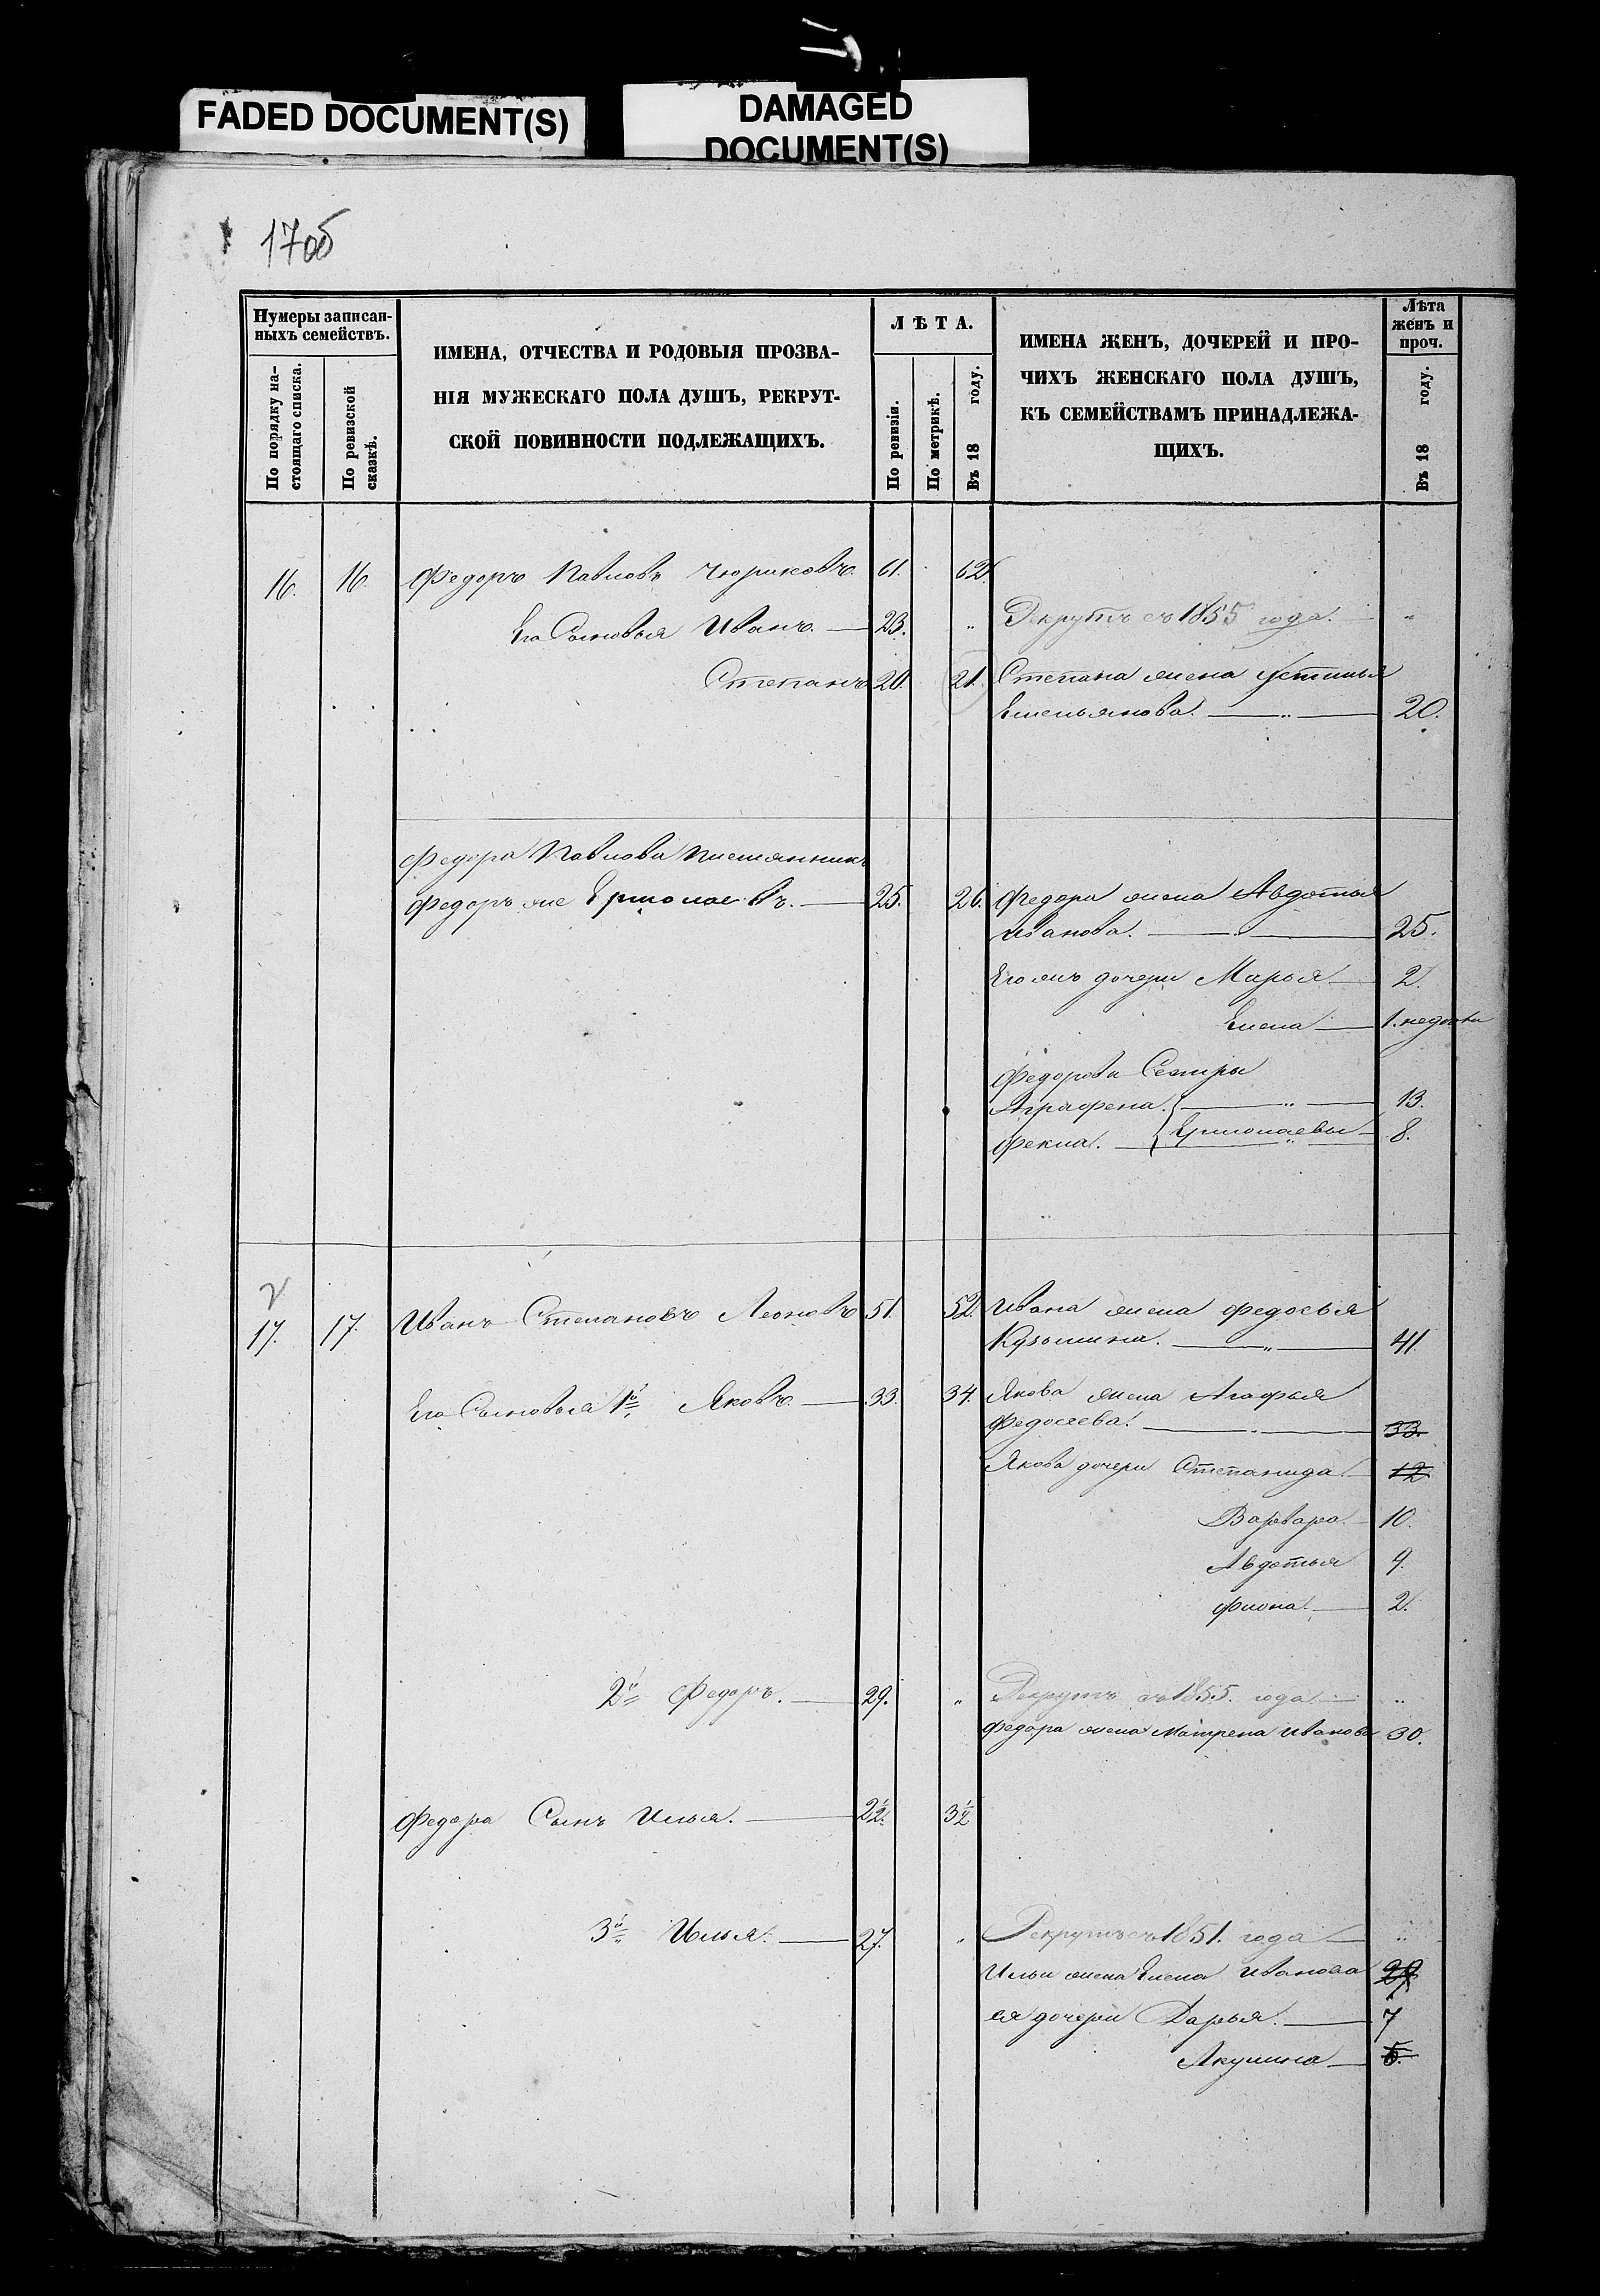 FADED DOCUMENT(S)
DAMAGED
DOCUMENT(S)
17об
Нумеры записан-
ныхъ семействъ.
По порядку на-
стоящаго списка.
По ревизской
сказкѣ.
ИМЕНА, ОТЧЕСТВА И РОДОВЫЯ ПРОЗВА-
НІЯ МУЖЕСКАГО ПОЛА ДУШЪ, РЕКРУТ-
СКОЙ ПОВИННОСТИ ПОДЛЕЖАЩИХЪ.
ЛѢТА.
По ревизіи.
По метрикѣ.
Въ 18 году.
ИМЕНА ЖЕНЪ, ДОЧЕРЕЙ И ПРО-
ЧИХЪ ЖЕНСКАГО ПОЛА ДУШЪ,
КЪ СЕМЕЙСТВАМЪ ПРИНАДЛЕЖА-
ЩИХЪ.
Лѣта
женъ и
проч.
Въ 18 году.
16. 16. Федоръ Павловъ Чюриковъ. 61. 62.
Его Сыновья Иванъ. — 23. „ Рекрутъ съ 1855 года. — „
Степанъ 20. 21. Степана жена Устинья
Емельянова. — „ — 20.
Федора Павлова племянникъ
Федоръ же Ермолаевъ. — 25. 26. Федора жена Авдотья
Иванова. — 25.
Его жъ дочери Марья — 2.
Елена — 1. недѣли
Федоровы Сестры
Аграфена. { — „ — 13.
Фекла. — { Ермолаевы — 8.
17. 17. Иванъ Степановъ Леоновъ 51. 52. Ивана жена Федосья
Кузьмина. — „ — 41.
Его Сыновья 1й Яковъ. — 33. 34. Якова жена Агафья
Федосеева. — 33.
Якова дочери Степанида — 12
Варвара. — 10.
Авдотья 9.
Фиона. — 2.
2й Федоръ. — 29. „ Рекрутъ съ 1855. года. — „
Федора жена Матрена Иванова 30.
Федора Сынъ Илья. — 2½. 3½
3й Илья. — 27. „ Рекрутъ съ 1851. года — „
Ильи жена Елена Иванова
ея дочери Дарья. — 7
Акулина — 5.